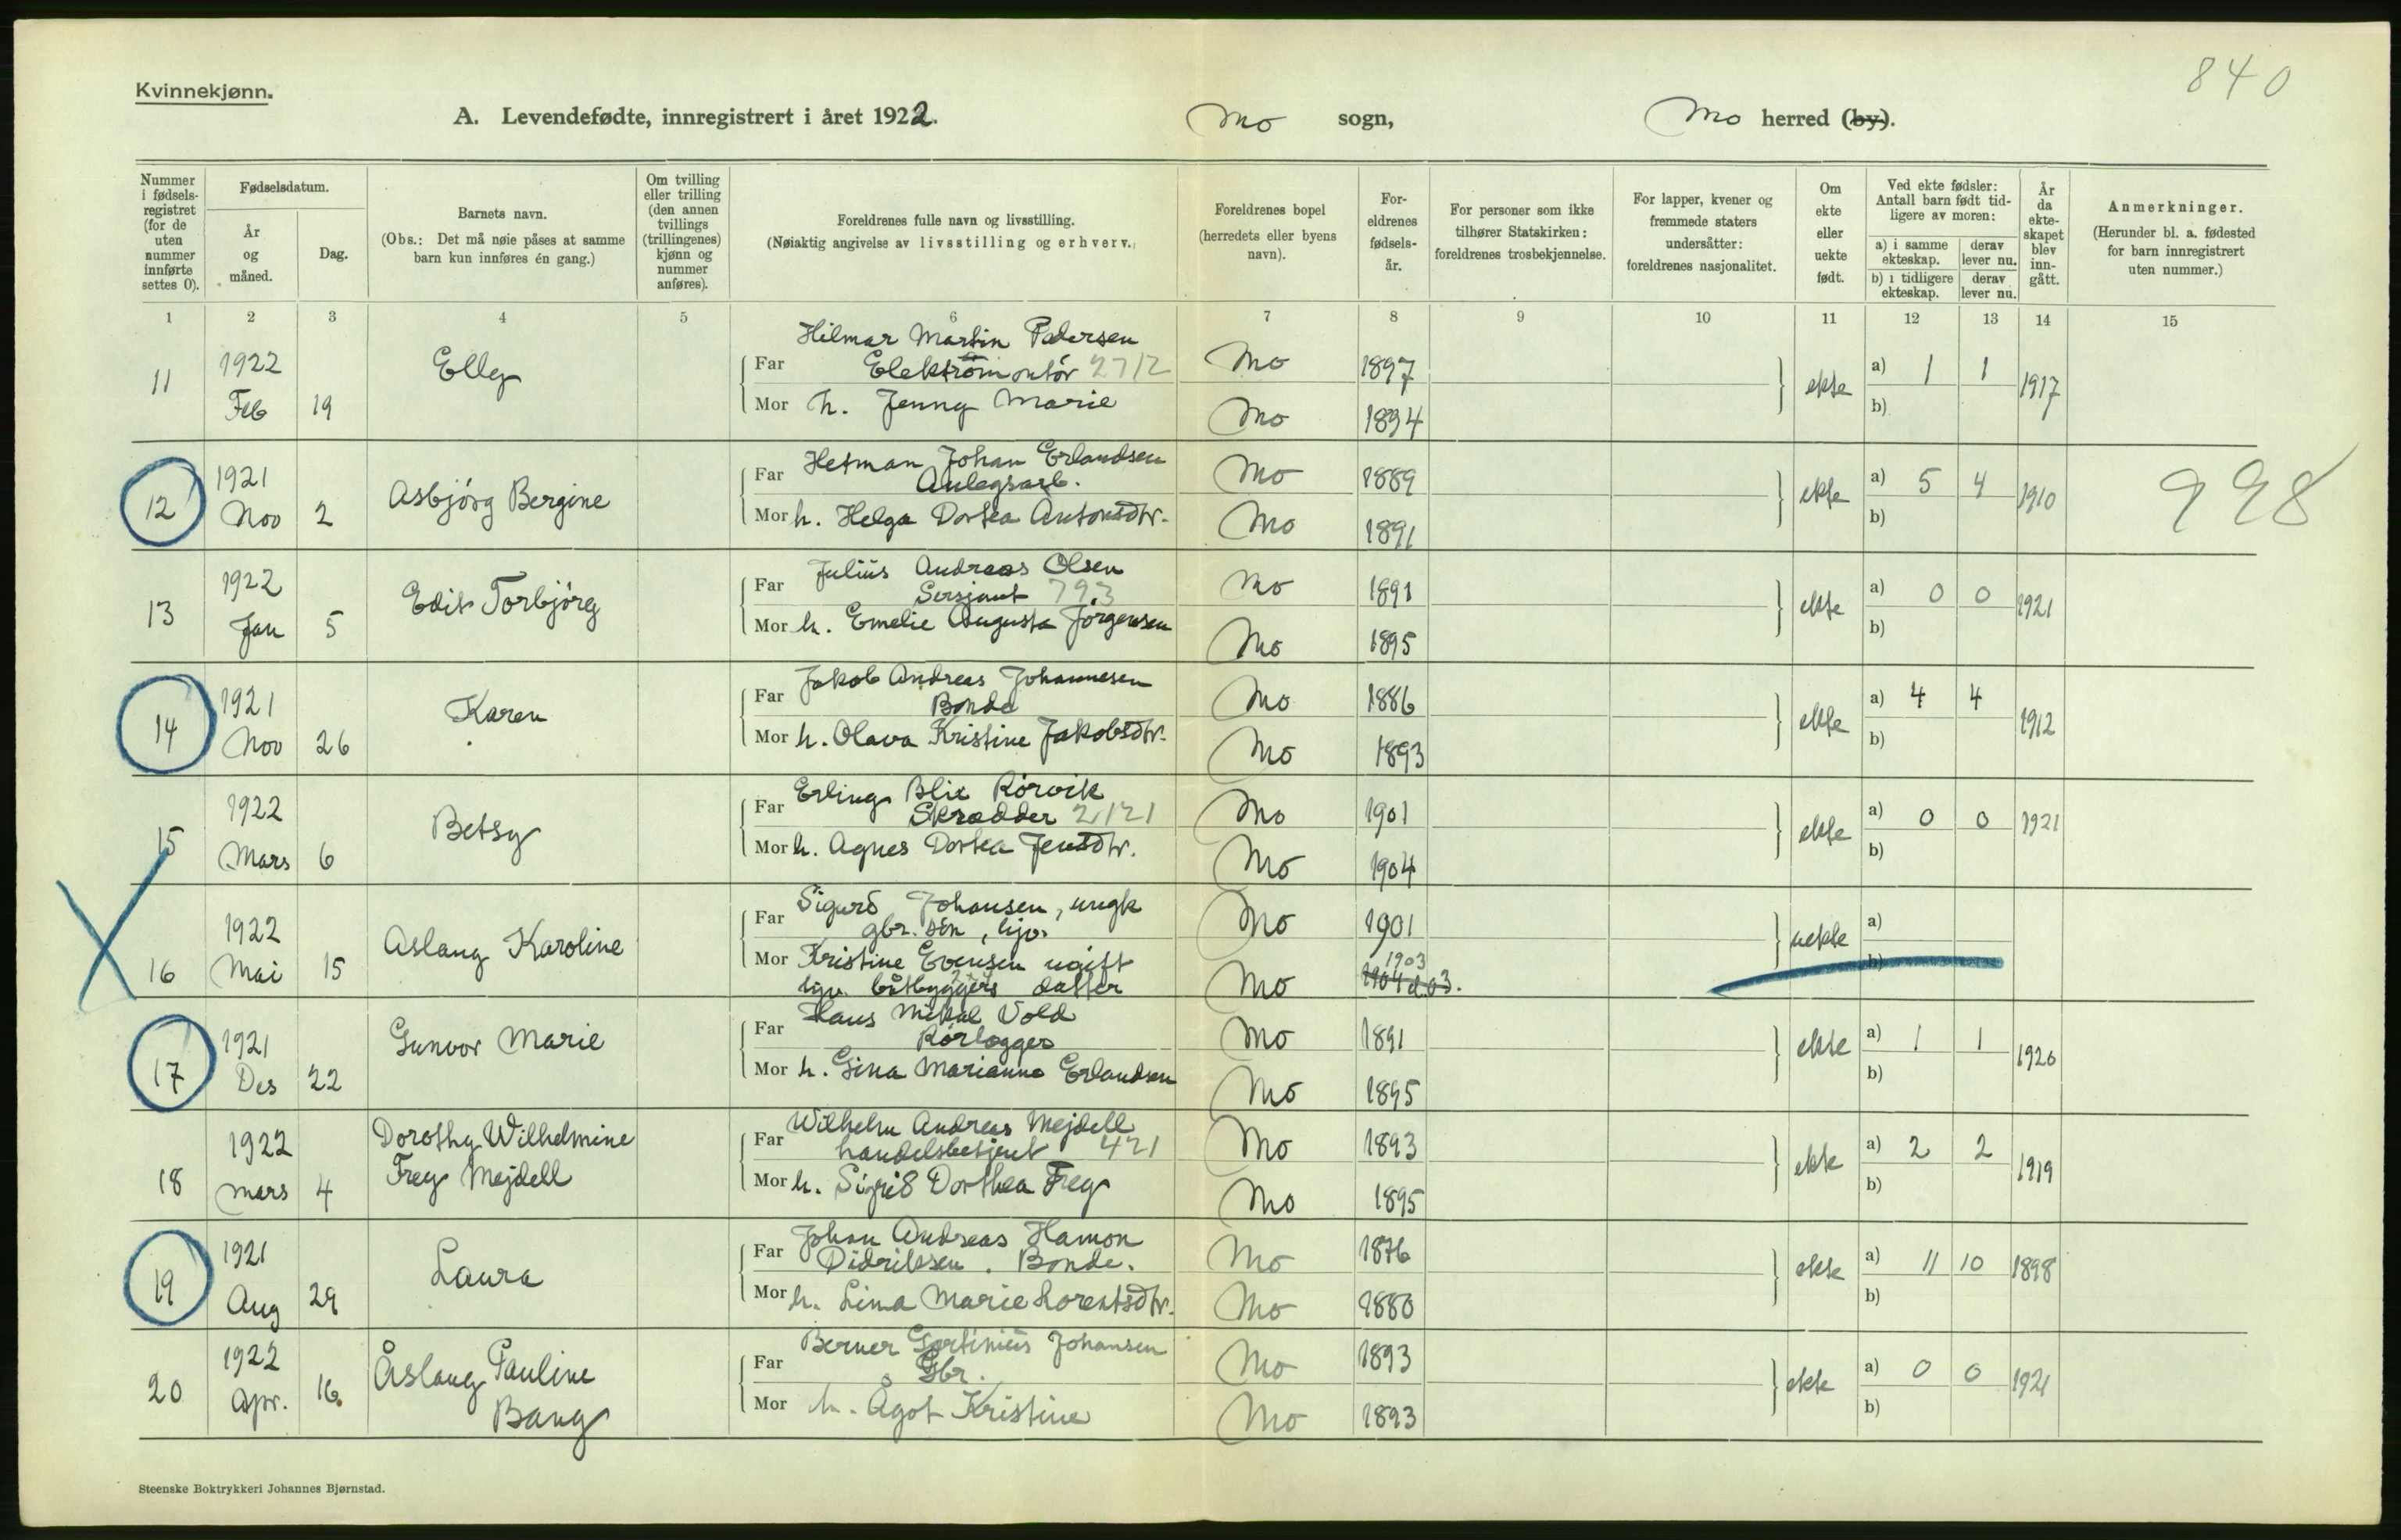 840
Kvinnekjønn.
A. Levendefødte, innregistrert i året 1922. Mo sogn, Mo herred (by).
Nummer i fødselsregistret (for de uten nummer innførte settes 0).
Fødselsdatum.
År og måned.
Dag.
Barnets navn.
(Obs.: Det må nøie påses at samme barn kun innføres én gang.)
Om tvilling eller trilling (den annen tvillings (trillingenes) kjønn og nummer anføres).
Foreldrenes fulle navn og livsstilling.
(Nøiaktig angivelse av livsstilling og erhverv.)
Foreldrenes bopel (herredets eller byens navn).
Foreldrenes fødselsår.
For personer som ikke tilhører Statskirken: foreldrenes trosbekjennelse.
For lapper, kvener og fremmede staters undersåtter: foreldrenes nasjonalitet.
Om ekte eller uekte født.
Ved ekte fødsler: Antall barn født tidligere av moren:
a) i samme ekteskap. derav lever nu.
b) i tidligere ekteskap. derav lever nu.
År da ekteskapet blev inngått.
Anmerkninger.
(Herunder bl. a. fødested for barn innregistrert uten nummer.)
1 2 3 4 5 6 7 8 9 10 11 12 13 14 15
11 1922 Feb 19 Elly
Far Hilmar Martin Pedersen Elektromontör 2712 Mo 1897
Mor h. Jenny Marie Mo 1894
ekte a) 1 1 b) 1917
12 1921 Nov 2 Asbjörg Bergine
Far Herman Johan Erlandsen Anlegsarb. Mo 1889
Mor h. Helga Dortea Antonsdtr. Mo 1891
ekte a) 5 4 b) 1910 998
13 1922 Jan 5 Edit Torbjörg
Far Julius Andreas Olsen Sersjant 793 Mo 1891
Mor h. Emelie Augusta Jörgensen Mo 1895
ekte a) 0 0 b) 1921
14 1921 Nov 26 Karen
Far Jakob Andreas Johannesen Bonde Mo 1886
Mor h. Olava Kristine Jakobsdtr. Mo 1893
ekte a) 4 4 b) 1912
15 1922 Mars 6 Betsy
Far Erling Blix Rörvik Skrædder 2121 Mo 1901
Mor h. Agnes Dortea Jensdtr. Mo 1904
ekte a) 0 0 b) 1921
16 1922 Mai 15 Aslaug Karoline
Far Sigurd Johansen, ungk gbr. sön, hjv. Mo 1901
Mor Kristine Evensen ugift hjv. båtbyggers datter Mo 1903 1904 d.03.
uekte a) b)
17 1921 Des 22 Gunvor Marie
Far Hans Mikal Vold Rörlægger Mo 1891
Mor h. Gina Marianne Erlandsen Mo 1895
ekte a) 1 1 b) 1920
18 1922 mars 4 Dorothy Wilhelmine Frey Mejdell
Far Wilhelm Andreas Mejdell handelsbetjent 421 Mo 1893
Mor h. Sigrid Dorthea Frey Mo 1895
ekte a) 2 2 b) 1919
19 1921 Aug 29 Laura
Far Johan Andreas Hamon Didriksen. Bonde. Mo 1876
Mor h. Lina Marie Lorentsdtr. Mo 1880
ekte a) 11 10 b) 1898
20 1922 Apr. 16. Åslaug Pauline Bang
Far Berner Johansen Gbr. Mo 1893
Mor h. Ågot Kristine Mo 1893
ekte a) 0 0 b) 1921
Steenske Boktrykkeri Johannes Bjørnstad.